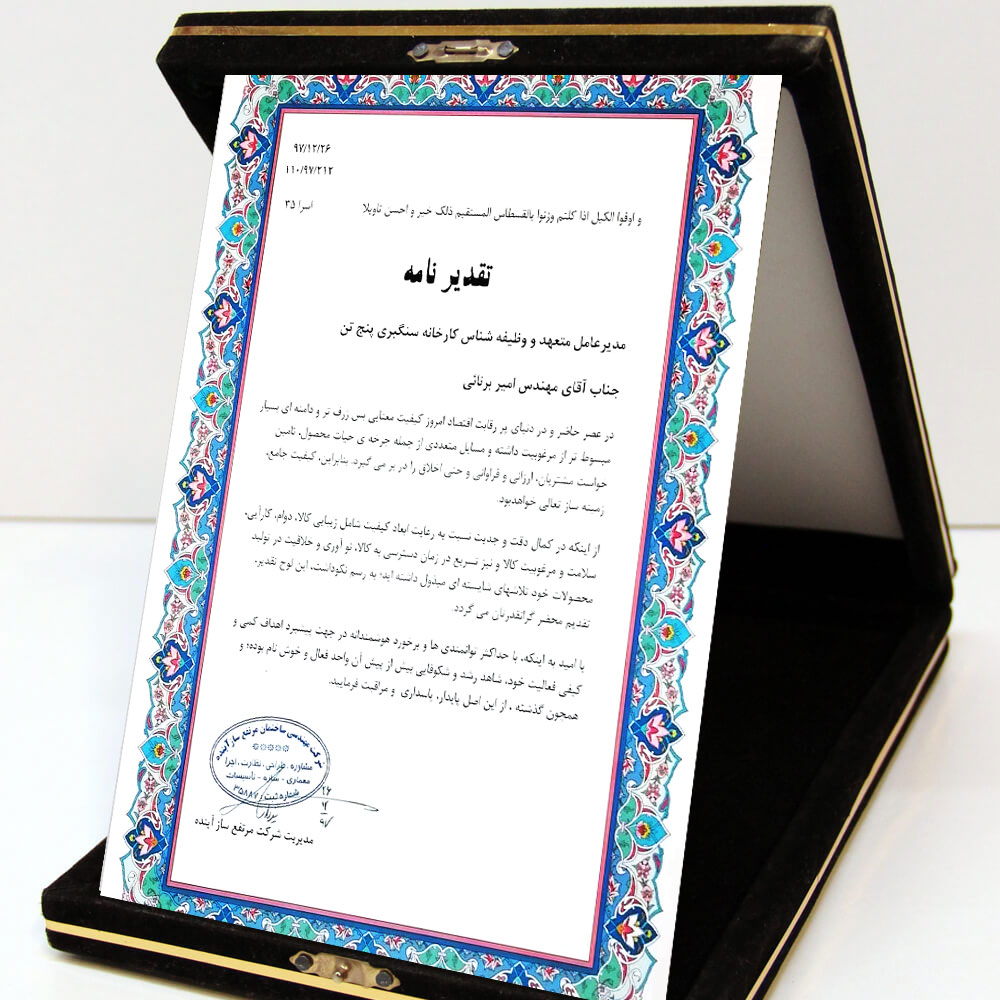 ۹۷/۱۲/۲۶
۱۱۰/۹۷/۲۱۲
و اوفوا الکیل اذا کلتم وزنوا بالقسطاس المستقیم ذلک خیر و احسن تاویلا اسرا ۳۵
تقدیر نامه
مدیرعامل متعهد و وظیفه شناس کارخانه سنگبری پنج تن
جناب آقای مهندس امیر برنائی
در عصر حاضر و در دنیای پر رقابت اقتصاد امروز کیفیت معنایی بس ژرف تر و دامنه ای بسیار
مبسوط تر از مرغوبیت داشته و مسایل متعددی از جمله چرخه ی حیات محصول، تامین
خواست مشتریان، ارزانی و فراوانی و حتی اخلاق را در بر می گیرد. بنابراین، کیفیت جامع،
زمینه ساز تعالی خواهدبود.
از اینکه در کمال دقت و جدیت نسبت به رعایت ابعاد کیفیت شامل زیبایی کالا، دوام، کارآیی،
سلامت و مرغوبیت کالا و نیز تسریع در زمان دسترسی به کالا، نو آوری و خلاقیت در تولید
محصولات خود تلاشهای شایسته ای مبذول داشته اید؛ به رسم نکوداشت، این لوح تقدیر،
تقدیم محضر گرانقدرتان می گردد.
با امید به اینکه، با حداکثر توانمندی ها و برخورد هوشمندانه در جهت پیشبرد اهداف کمی و
کیفی فعالیت خود، شاهد رشد و شکوفایی بیش از پیش آن واحد فعال و خوش نام بوده؛ و
همچون گذشته ، از این اصل پایدار، پاسداری و مراقبت فرمایید.
شرکت مهندسی ساختمان مرتفع ساز آینده
مشاوره . طراحی . نظارت . اجرا
معماری - سازه - تاسیسات
شماره ثبت : ۳۵۸۸۷
مدیریت شرکت مرتفع ساز آینده